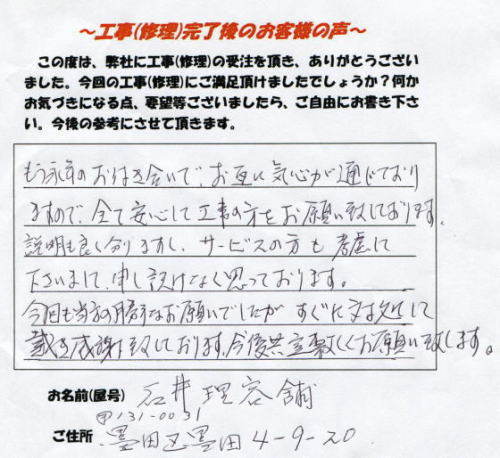 ～工事(修理)完了後のお客様の声～
この度は、弊社に工事(修理)の受注を頂き、ありがとうござい
ました。今回の工事(修理)にご満足頂けましたでしょうか？何か
お気づきになる点、要望等ございましたら、ご自由にお書き下さ
い。今後の参考にさせて頂きます。
もう永年のお付き合いで、お互い気心が通じており
ますので、全て安心して工事の方をお願い致しております。
説明も良く分りますし、サービスの方も考慮して
下さいまして、申し訳けなく思っております。
今回も当方の勝手なお願いでしたが すぐに対処して
戴き感謝致しております。今後共宜敷くお願い致します。
お名前(屋号) 石井理容舗
〒131-0031
ご住所 墨田区墨田4-9-20